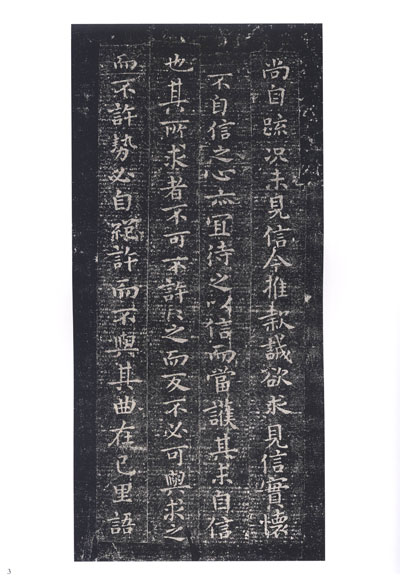 尚自踈况未見信今推款誠欲求見信實懷
不自信之心亦宜待之以信而當護其未自信
也其所求者不可不許〻之而反不必可與求之
而不許勢必自絕許而不與其曲在己里語
3